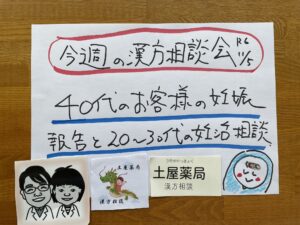 今週の漢方相談会 R6 11/5
40代のお客様の妊娠
報告と20〜30代の妊活相談
土屋薬局
漢方相談
土屋薬局
漢方相談